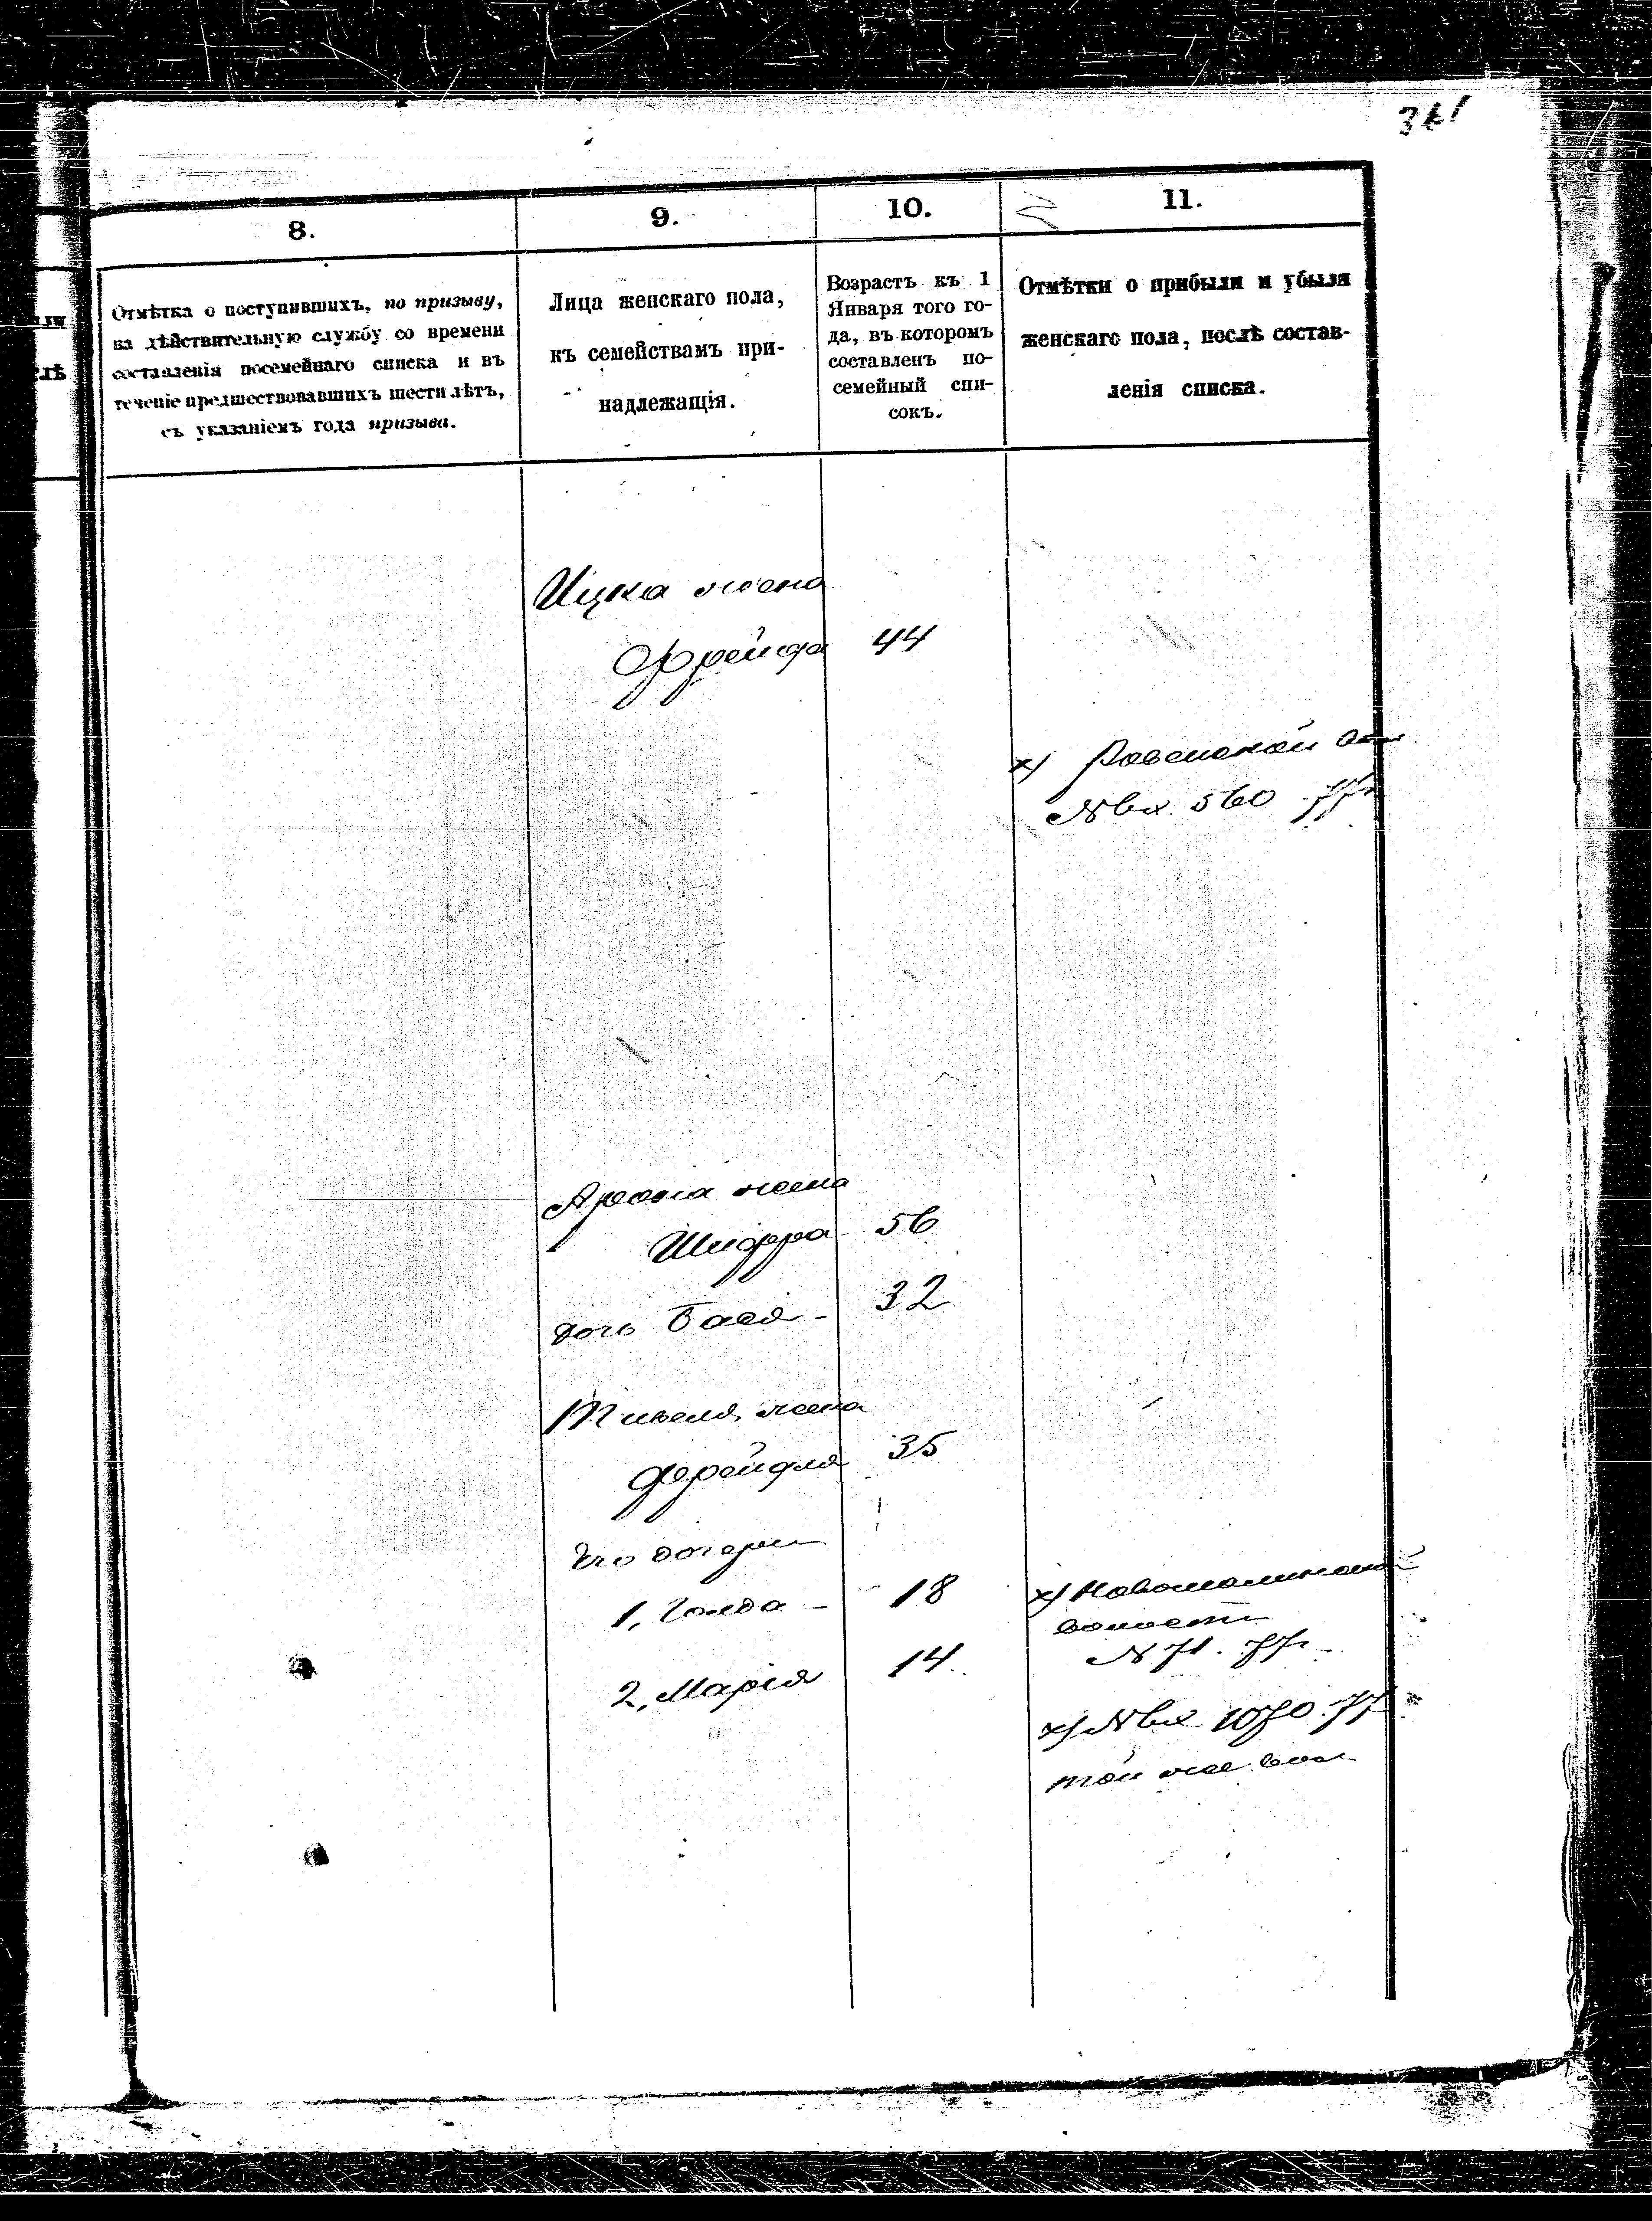 8.
9.
10.
11.
Отмѣтка о поступившихъ, по призыву,
на дѣйствительную службу со времени
составленія посемейнаго списка и въ
теченіе предшествовавшихъ шести лѣтъ,
съ указаніемъ года призыва.
Лица женскаго пола,
къ семействамъ при-
надлежащія.
Возрастъ къ 1
Января того го-
да, въ которомъ
составленъ по-
семейный спи-
сокъ.
Отмѣтки о прибыли и убыли
женскаго пола, послѣ состав-
ленія списка.
Ицка жена
Фрейда 44
х) Ровенской
№ вх. 560 77
Арона жена
Шифра 56
дочь Бася - 32
жена
Фрейдля 35
Его дочери
1, Голда - 18
х)
волости
№ 71. 77г.
2, Марія 14
х) № вх. 1070 77
той же вол